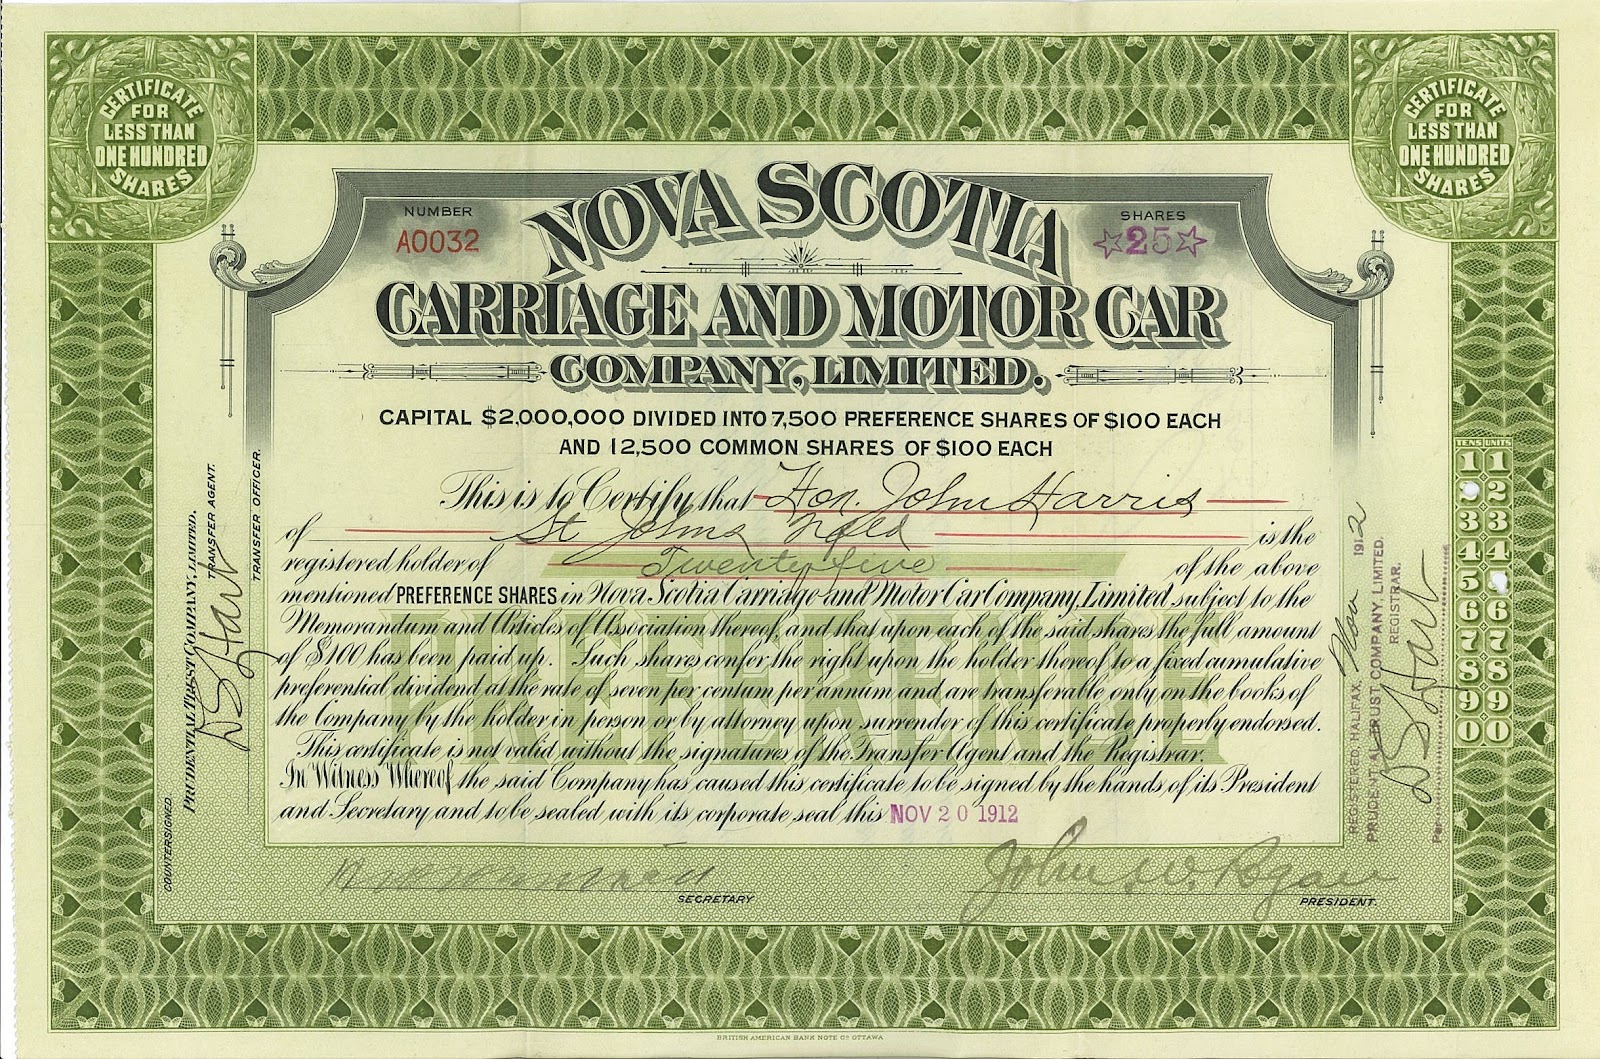 CERTIFICATE
FOR
LESS THAN
ONE HUNDRED
SHARES
CERTIFICATE
FOR
LESS THAN
ONE HUNDRED
SHARES
NUMBER
A0032
SHARES
☆25☆
NOVA SCOTIA
CARRIAGE AND MOTOR CAR
COMPANY, LIMITED.
CAPITAL $2,000,000 DIVIDED INTO 7,500 PREFERENCE SHARES OF $100 EACH
AND 12,500 COMMON SHARES OF $100 EACH
This is to Certify that Hon. John Harris
of St Johns Nfld is the
registered holder of Twenty five of the above
mentioned PREFERENCE SHARES in Nova Scotia Carriage and Motor Car Company, Limited subject to the
Memorandum and Articles of Association thereof, and that upon each of the said shares the full amount
of $100 has been paid up. Such shares confer the right upon the holder thereof to a fixed cumulative
preferential dividend at the rate of seven per centum per annum and are transferable only on the books of
the Company by the holder in person or by attorney upon surrender of this certificate properly endorsed.
This certificate is not valid without the signatures of the Transfer Agent and the Registrar.
In Witness Whereof the said Company has caused this certificate to be signed by the hands of its President
and Secretary and to be sealed with its corporate seal this NOV 20 1912
PREFERENCE
SECRETARY
John W. Regan
PRESIDENT.
COUNTERSIGNED
PRUDENTIAL TRUST COMPANY, LIMITED.
TRANSFER AGENT.
TRANSFER OFFICER.
REGISTERED, HALIFAX, Nov 1912
PRUDENTIAL TRUST COMPANY, LIMITED.
REGISTRAR.
Per
TENS UNITS
1 1
2
3 3
4 4
5
6 6
7 7
8 8
9 9
0 0
BRITISH AMERICAN BANK NOTE CO. OTTAWA